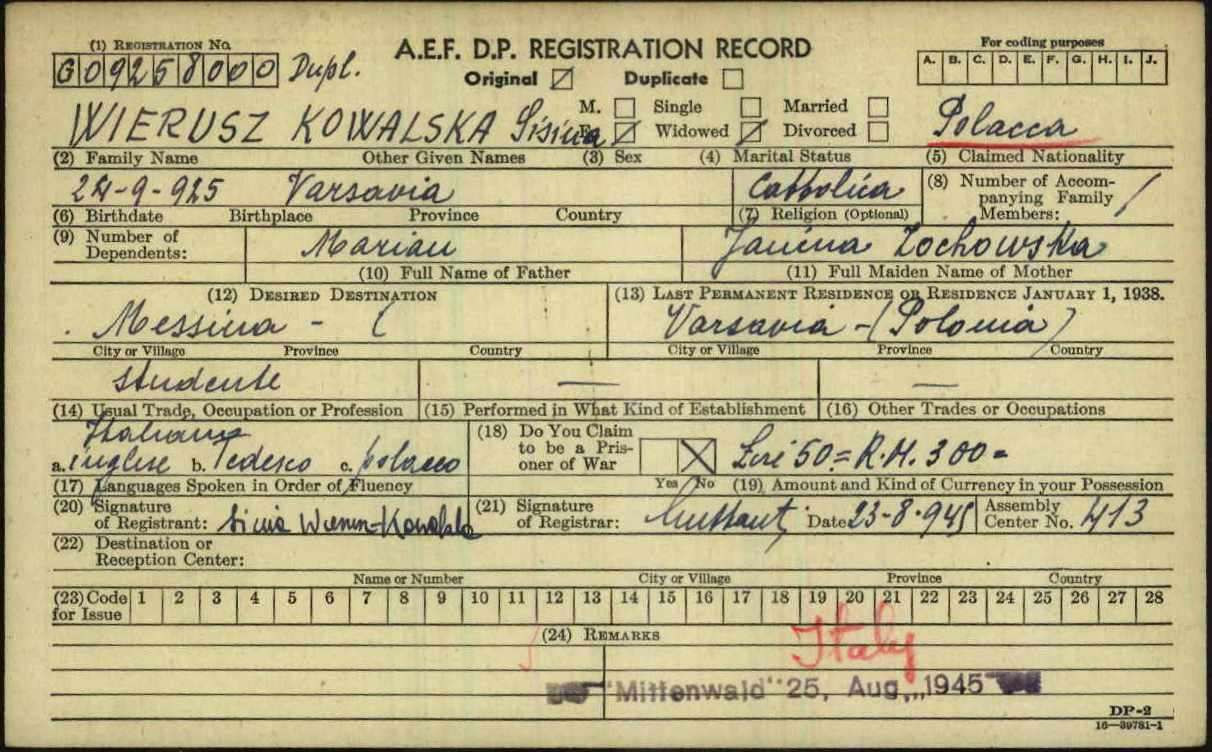 (1) REGISTRATION NO. A.E.F. D.P. REGISTRATION RECORD For coding purposes
G09258000 Dupl. Original Duplicate A. B. C. D. E. F. G. H. I. J.
M. Single Married
WIERUSZ KOWALSKA Sisina F. Widowed Divorced Polacca
(2) Family Name Other Given Names (3) Sex (4) Marital Status (5) Claimed Nationality
24-9-925 Varsavia Cattolica (8) Number of Accompanying Family Members: /
(6) Birthdate Birthplace Province Country (7) Religion (Optional)
(9) Number of Dependents: Marian Janina Zochowska
(10) Full Name of Father (11) Full Maiden Name of Mother
(12) DESIRED DESTINATION (13) LAST PERMANENT RESIDENCE OR RESIDENCE JANUARY 1, 1938.
Messina - ( Varsavia - (Polonia)
City or Village Province Country City or Village Province Country
studente — —
(14) Usual Trade, Occupation or Profession (15) Performed in What Kind of Establishment (16) Other Trades or Occupations
Italiano
a. inglese b. Tedesco c. polacco (18) Do You Claim to be a Prisoner of War Lire 50= R.M. 300=
(17) Languages Spoken in Order of Fluency Yes No (19) Amount and Kind of Currency in your Possession
(20) Signature of Registrant: (21) Signature of Registrar: Date 23-8-945 Assembly Center No. 413
(22) Destination or Reception Center:
Name or Number City or Village Province Country
(23) Code for Issue 1 2 3 4 5 6 7 8 9 10 11 12 13 14 15 16 17 18 19 20 21 22 23 24 25 26 27 28
(24) REMARKS
Italy
"Mittenwald" 25, Aug. 1945
DP-2
16—39781-1